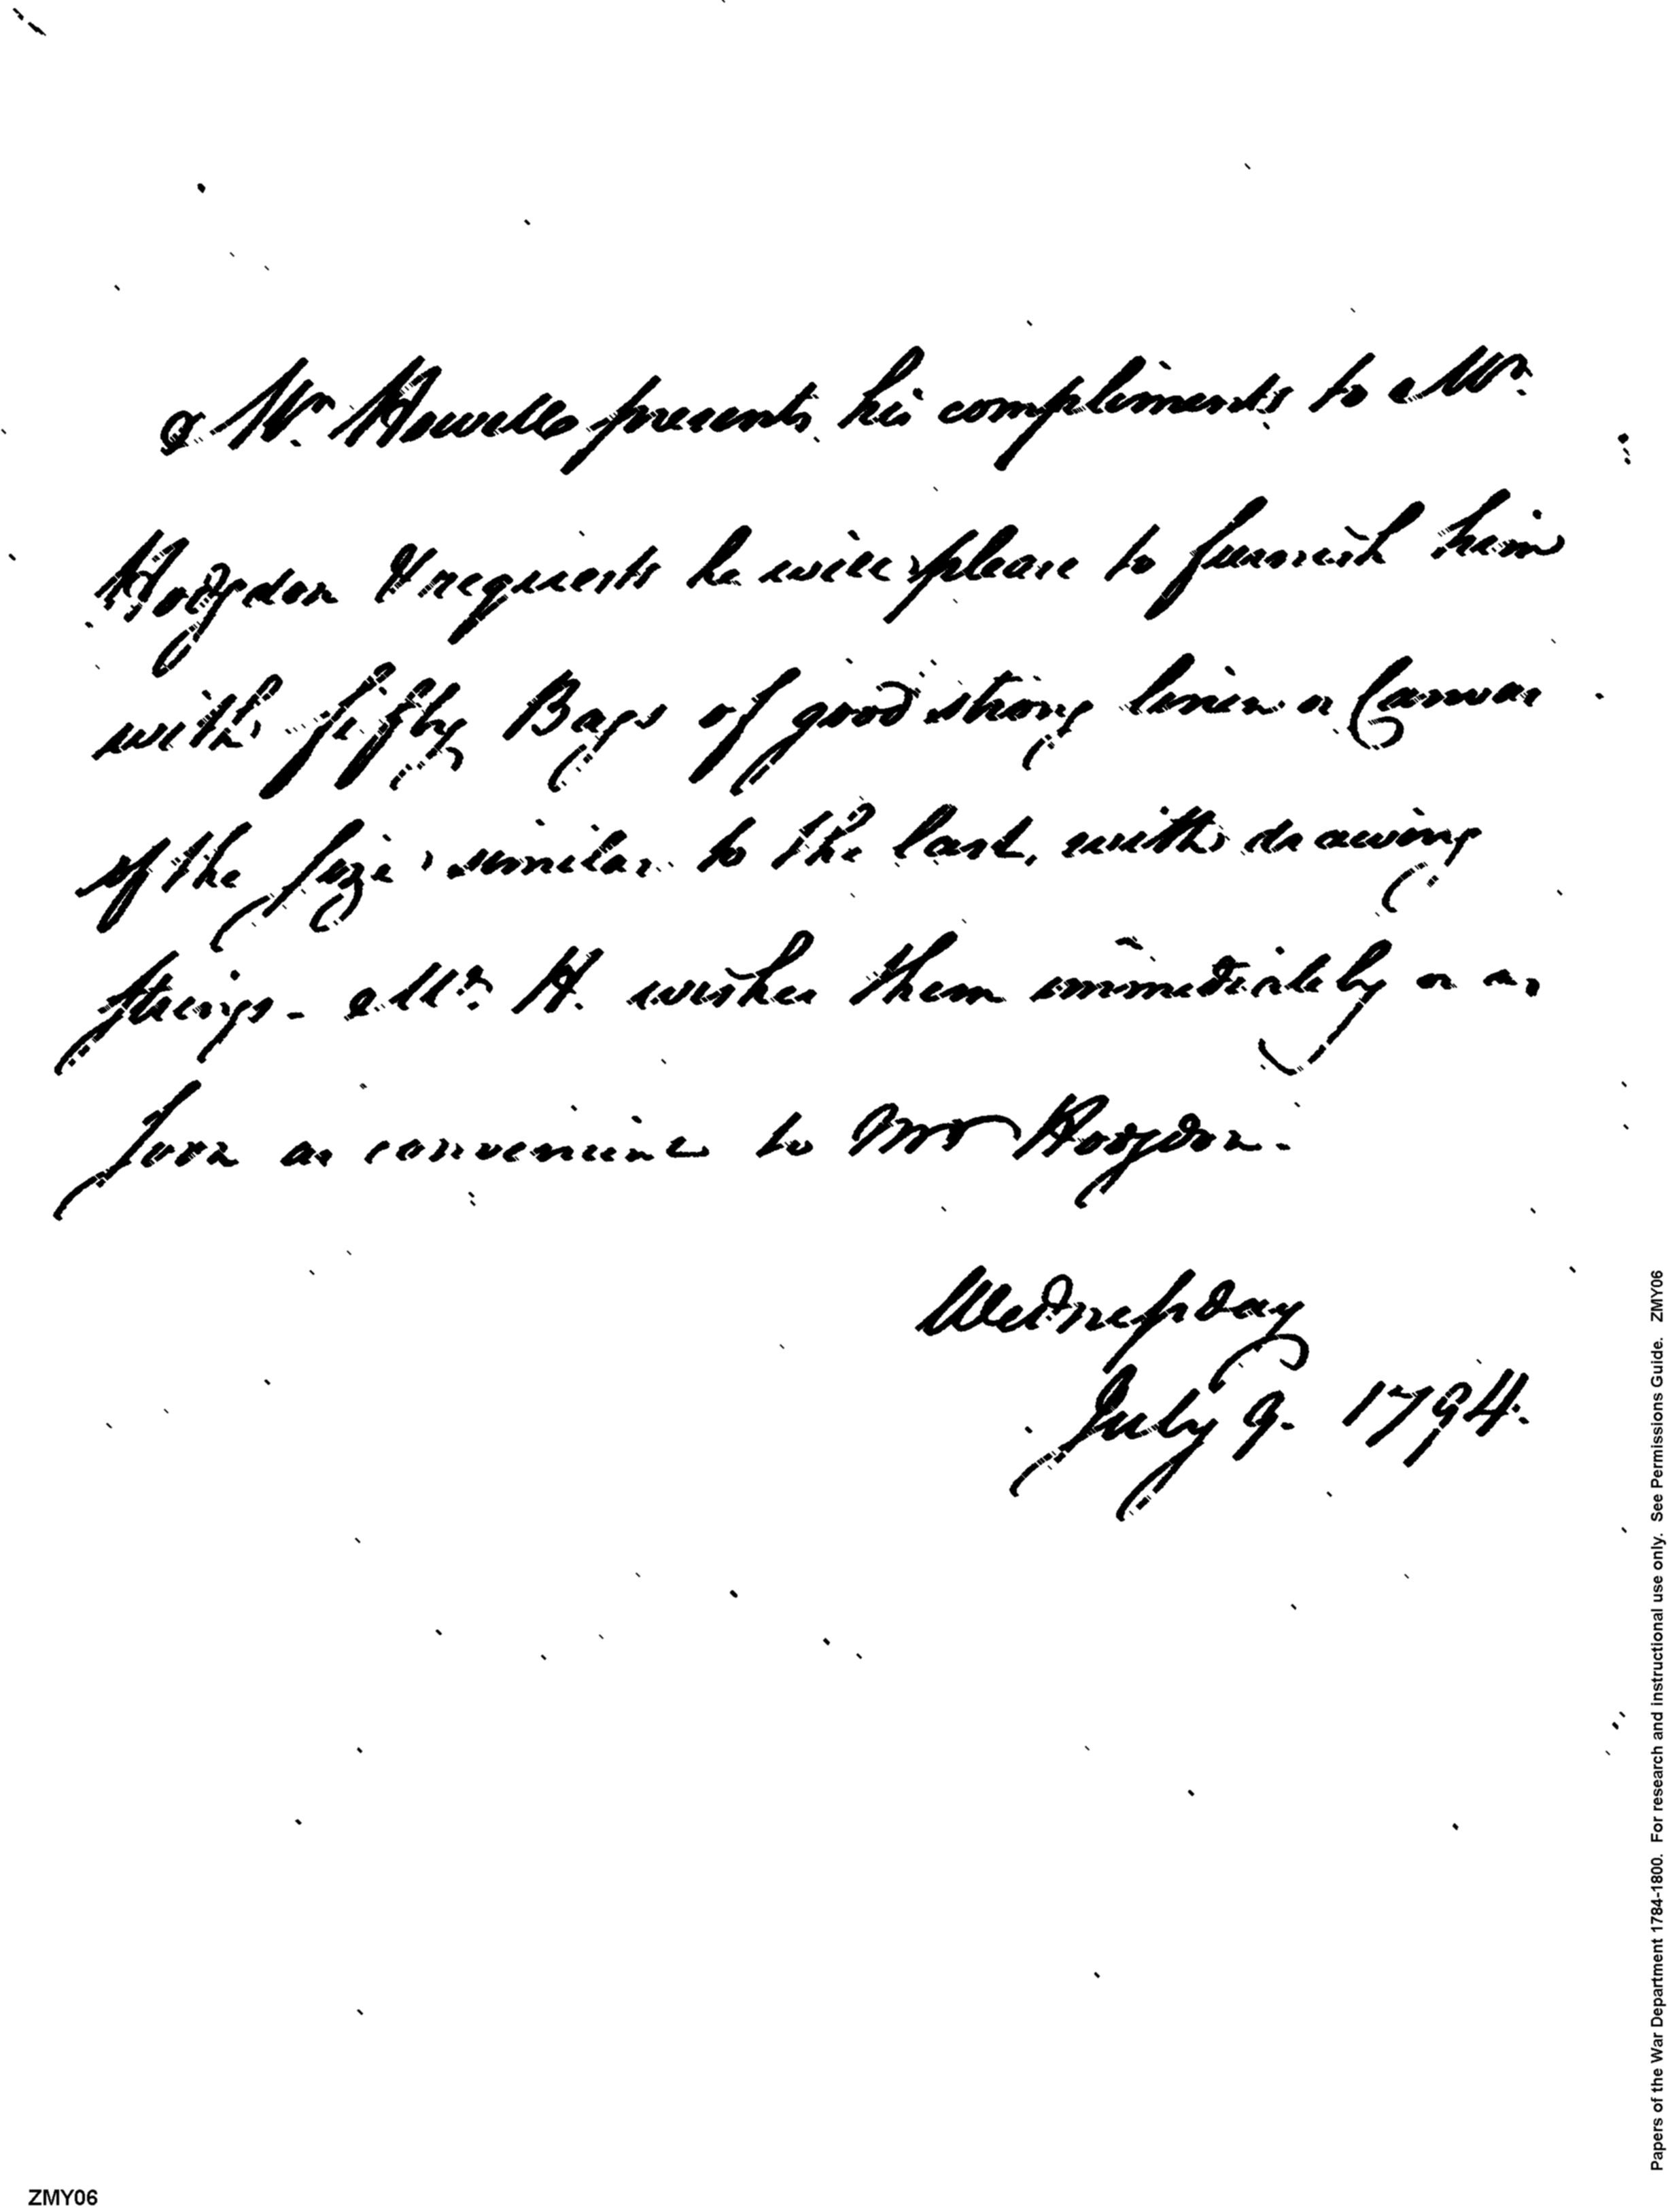 Mr. Howell presents his compliments to Mr.
Hogdon & requests he will please to furnish him
with fifty Bags of good strong linen or Canvas
of the size similar to the last, with drawing
strings - Mr. H. wishes them immediately or as
soon as convenient to Mr Hogdon -
Wednesday
July 9. 1794.
Papers of the War Department 1784-1800. For research and instructional use only. See Permissions Guide. ZMY06
ZMY06